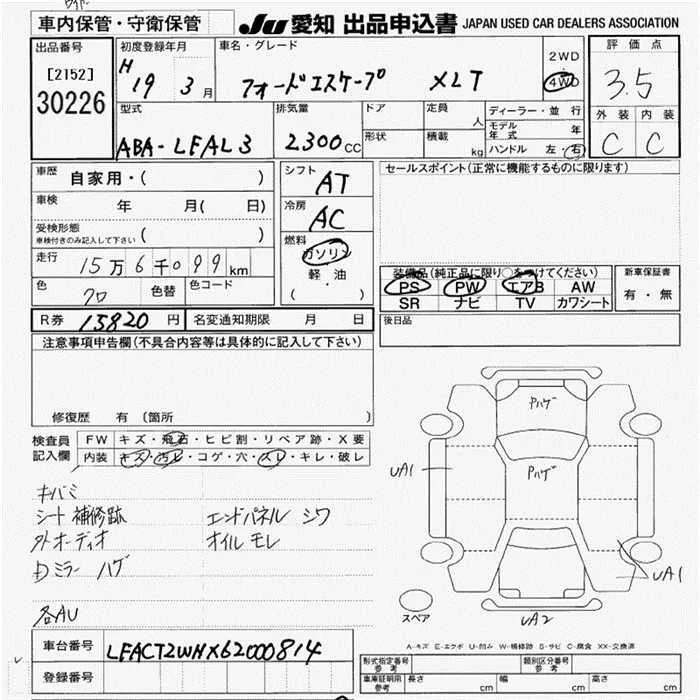 車内保管・守衛保管
JU 愛知 出品申込書 JAPAN USED CAR DEALERS ASSOCIATION
出品番号
[2152]
30226
初度登録年月
H 19 3 月
車名・グレード
フォードエスケープ XLT
2WD
4WD
評価点
3.5
外装 内装
C C
型式
ABA-LFAL3
排気量
2300cc
ドア
形状
定員 人
積載 kg
ディーラー・並行
モデル年式 年
ハンドル 左・右
車歴 自家用・( )
車検 年 月( 日)
受検形態
車検付きのみ記入して下さい ( )
走行 15万6千099km
色 クロ 色替 色コード
シフト AT
冷房 AC
燃料
ガソリン
軽油
( ・ )
セールスポイント(正常に機能するものに限ります)
装備品(純正品に限り○をつけてください)
PS PW エアB AW
SR ナビ TV カワシート
新車保証書
有・無
R券 15820円 名変通知期限 月 日
後日品
注意事項申告欄(不具合内容等は具体的に記入して下さい)
修復歴 有 (箇所 )
検査員記入欄
FW キズ・飛石・ヒビ割・リペア跡・X要
内装 キズ・汚レ・コゲ・穴・スレ・キレ・破レ
キバミ
シート補修跡 エンドパネル シワ
外オーディオ オイルモレ
Dミラー ハゲ
各AU
Pハゲ
Pハゲ
UA1
UA1
UA2
スペア
A-キズ E-エクボ U-凹み W-補修跡 S-サビ C-腐食 XX-交換済
車台番号 LFACT2WHX62000814
登録番号
形式指定番号 参考
類別区分番号 参考
車庫証明用 参考 長さ cm 幅 cm 高さ cm